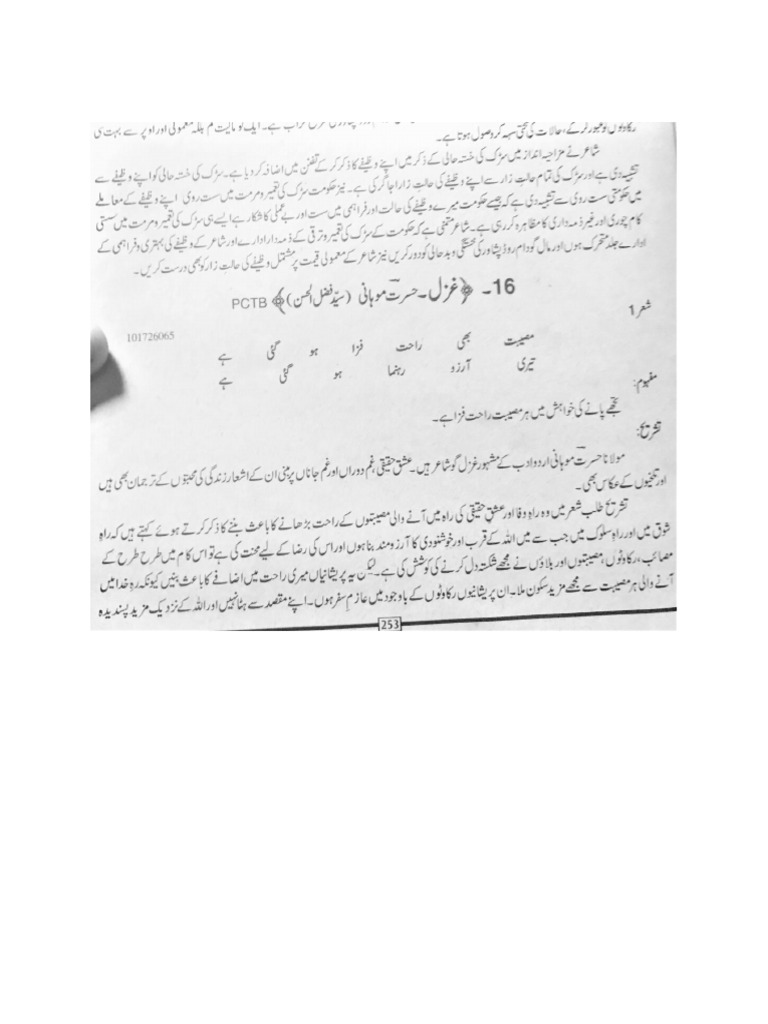 رکاوٹوں کو عبور کر کے، حالات کی سختی سہہ کر وصول ہوتا ہے۔ ایک تو مالیت کم بلکہ معمولی اور اوپر سے بہت سی
شاعر نے مزاحیہ انداز میں سڑک کی خستہ حالی کے ذکر میں اپنے وظیفے کا ذکر کر کے تفنن میں اضافہ کر دیا ہے۔ سڑک کی خستہ حالی کو اپنے وظیفے سے
تشبیہ دی ہے اور سڑک کی تمام حالتِ زار سے اپنے وظیفے کی حالتِ زار اجاگر کی ہے۔ نیز حکومت سڑک کی تعمیر و مرمت میں سست روی اپنے وظیفے کے معاملے
میں حکومتی سست روی سے تشبیہ دی ہے کہ جیسے حکومت میرے وظیفے کی حالت اور فراہمی میں سست اور بے عملی کا شکار ہے ایسے ہی سڑک کی تعمیر و مرمت میں سستی
کام چوری اور غیر ذمہ داری کا مظاہرہ کر رہی ہے۔ شاعر متمنی ہے کہ حکومت کے سڑک کی تعمیر و ترقی کے ذمہ دار ادارے اور شاعر کے وظیفے کی بہتری و فراہمی کے
ادارے جلد متحرک ہوں اور مال گودام روڈ پشاور کی خستگی و بدحالی کو دور کریں نیز شاعر کے معمولی قیمت پر مشتمل وظیفے کی حالتِ زار کو بھی درست کریں۔
16۔ ﴿غزل۔ حسرتؔ موہانی (سیّد فضل الحسن)﴾ PCTB
شعر 1
101726065
مصیبت بھی راحت فزا ہو گئی ہے
تیری آرزو رہنما ہو گئی ہے
مفہوم:
تجھے پانے کی خواہش میں ہر مصیبت راحت فزا ہے۔
تشریح:
مولانا حسرتؔ موہانی اردو ادب کے مشہور غزل گو شاعر ہیں۔ عشقِ حقیقی، غمِ دوراں اور غمِ جاناں پر مبنی ان کے اشعار زندگی کی محبتوں کے ترجمان بھی ہیں
اور تلخیوں کے عکاس بھی۔
تشریح طلب شعر میں وہ راہِ وفا اور عشقِ حقیقی کی راہ میں آنے والی مصیبتوں کے راحت بڑھانے کا باعث بننے کا ذکر کرتے ہوئے کہتے ہیں کہ راہِ
شوق میں اور راہِ سلوک میں جب سے میں اللہ کے قرب اور خوشنودی کا آرزومند بنا ہوں اور اس کی رضا کے لیے محنت کی ہے تو اس کام میں طرح طرح کے
مصائب، رکاوٹوں، مصیبتوں اور بلاؤں نے مجھے شکستہ دل کرنے کی کوشش کی ہے۔ لیکن یہ پریشانیاں میری راحت میں اضافے کا باعث بنیں کیونکہ رہِ خدا میں
آنے والی ہر مصیبت سے مجھے مزید سکون ملا۔ ان پریشانیوں رکاوٹوں کے باوجود میں عازمِ سفر ہوں۔ اپنے مقصد سے ہٹا نہیں اور اللہ کے نزدیک مزید پسندیدہ
253